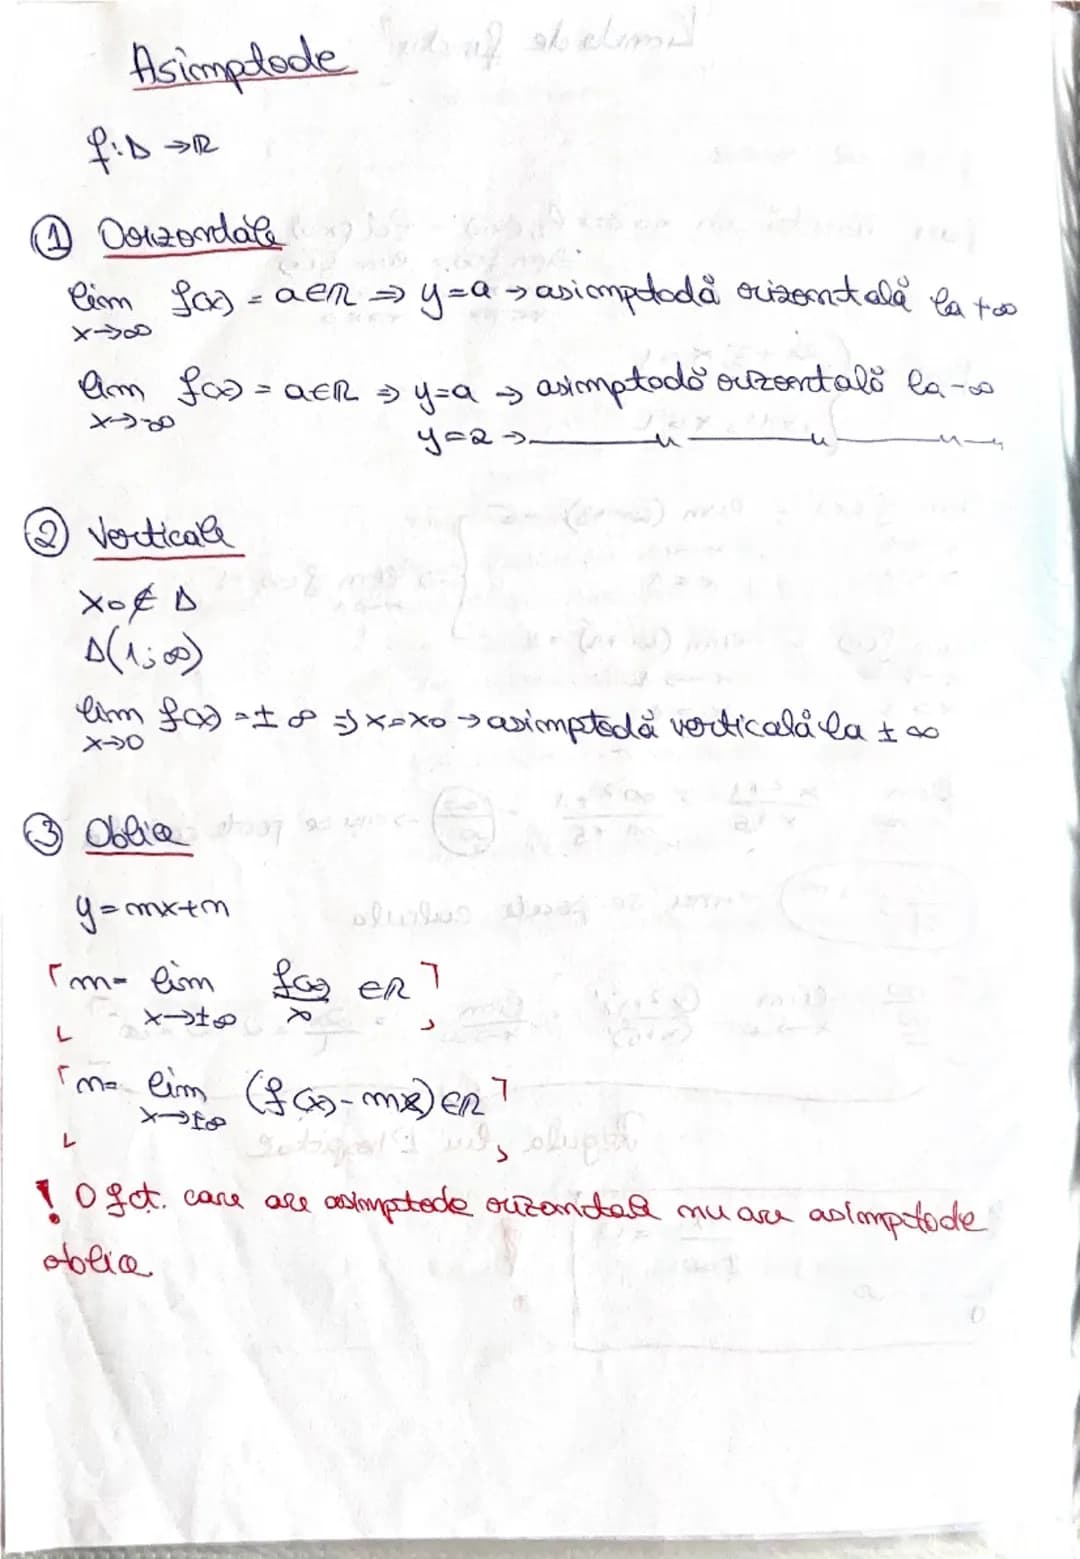 Asimptode
f: D → ℝ
① Orizontale
lim f(x) = a∈ℝ ⇒ y=a → asimptodă orizontală la +∞
x→∞
lim f(x) = a∈ℝ ⇒ y=a → asimptodă orizontală la -∞
x→-∞
y=2 → —— u —— u —— u —
② Verticale
x0 ∉ D
D(1; ∞)
lim f(x) = ± ∞ ⇒ x=x0 → asimptodă verticală la ± ∞
x→0
③ Oblice
y = mx+n
m= lim f(x)/x ∈ℝ
x→±∞
n= lim (f(x)-mx) ∈ℝ
x→±∞
! O fct. care are asimptode orizontale nu are asimptode
oblice.